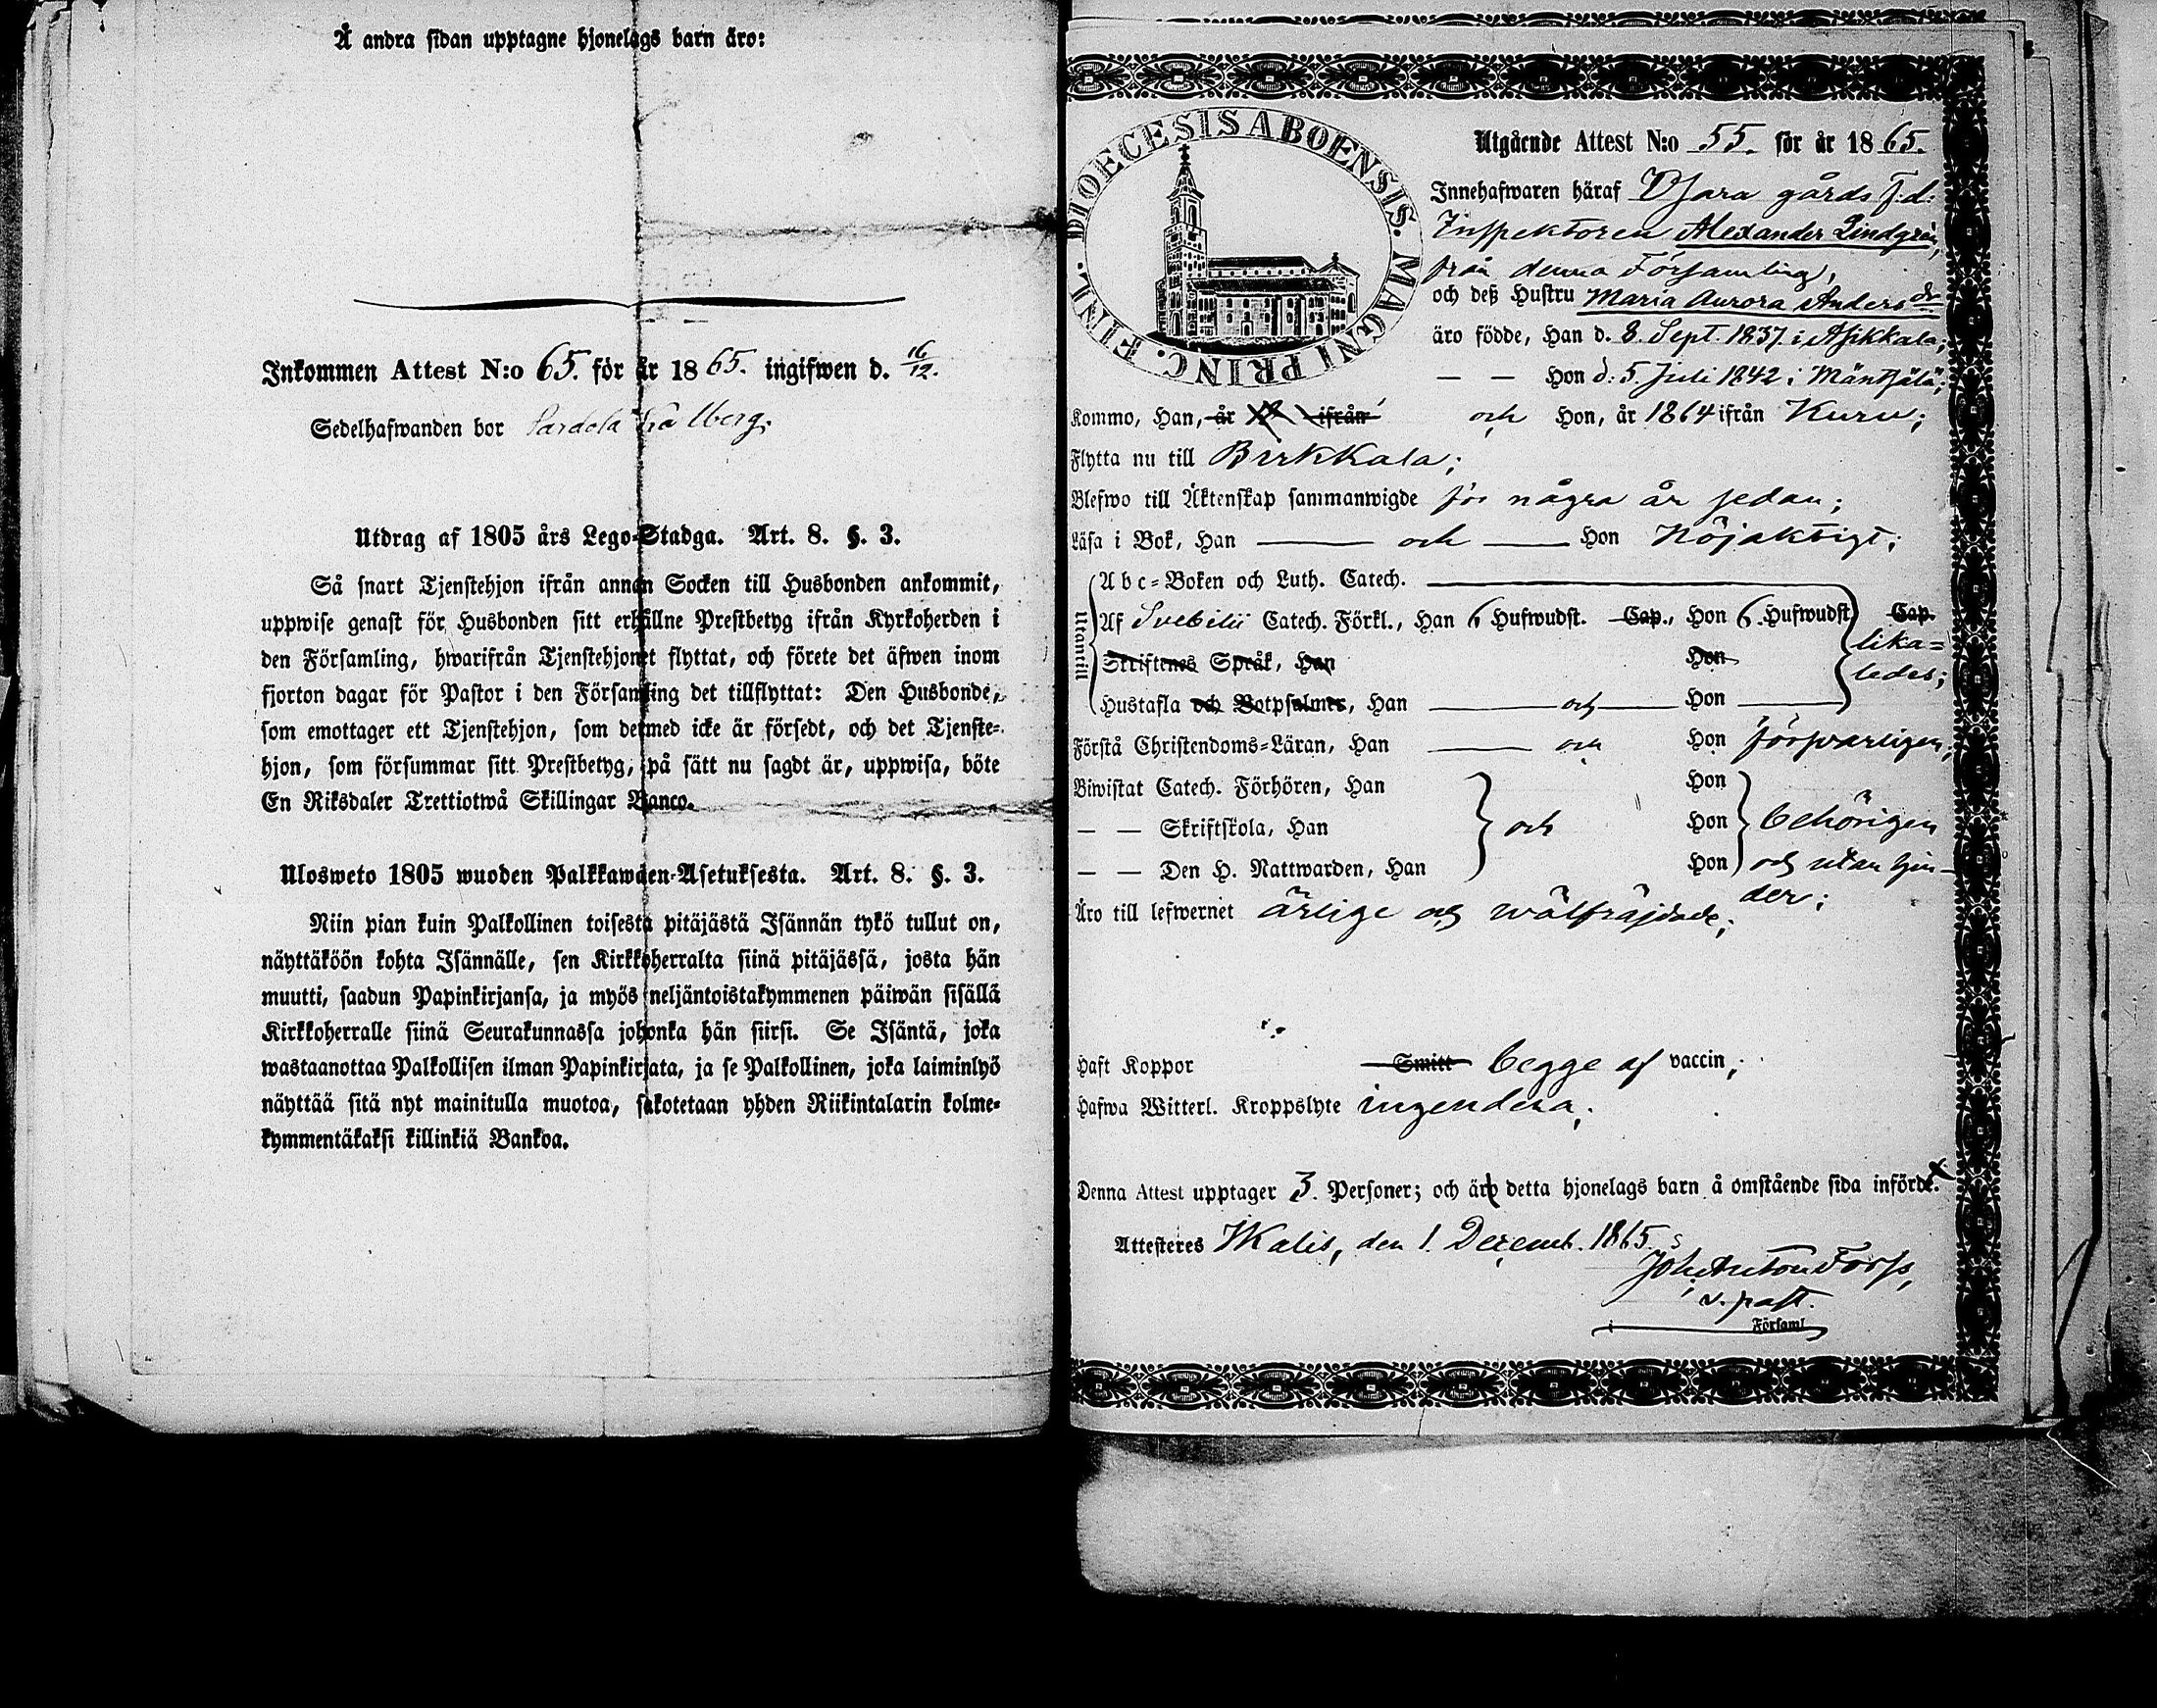 Å andra sidan upptagne hjonelags barn äro:
Inkommen Attest N:o 65. för år 1865. ingifwen d. 16/12.
Sedelhafwanden bor
Utdrag af 1805 års Lego-Stadga. Art. 8. §. 3.
Så snart Tjenstehjon ifrån annan Socken till Husbonden ankommit,
uppwise genast för Husbonden sitt erhållne Prestbetyg ifrån Kyrkoherden i
den Församling, hwarifrån Tjenstehjonet flyttat, och förete det äfwen inom
fjorton dagar för Pastor i den Församling det tillflyttat: Den Husbonde,
som emottager ett Tjenstehjon, som dermed icke är försedt, och det Tjenste-
hjon, som försummar sitt Prestbetyg, på sätt nu sagdt är, uppwisa, böte
En Riksdaler Trettiotwå Skillingar Banco.
Ulosweto 1805 wuoden Palkkawäen-Asetuksesta. Art. 8. §. 3.
Niin pian kuin Palkollinen toisesta pitäjästä Isännän tykö tullut on,
näyttäköön kohta Isännälle, sen Kirkkoherralta siinä pitäjässä, josta hän
muutti, saadun Papinkirjansa, ja myös neljäntoistakymmenen päiwän sisällä
Kirkkoherralle siinä Seurakunnassa johonka hän siirsi. Se Isäntä, joka
wastaanottaa Palkollisen ilman Papinkirjata, ja se Palkollinen, joka laiminlyö
näyttää sitä nyt mainitulla muotoa, sakotetaan yhden Riikintalarin kolme-
kymmentäkaksi killinkiä Bankoa.
DIOECESIS ABOENSIS. MAGNI PRINC. FINL.
Utgående Attest N:o 55. för år 1865.
Innehafwaren häraf Osara gårds f.d.
Inspektoren Alexander Lindgrén,
från denna Församling,
och deß Hustru Maria Aurora Andersdr
äro födde, Han d. 8. Sept. 1837 i Asikkala;
— — Hon d: 5. Juli 1842 i Mäntsälä;
Kommo, Han, år ifrån och Hon, år 1864 ifrån Kuru;
Flytta nu till Birkkala;
Blefwo till Äktenskap sammanwigde för några år sedan;
Läsa i Bok, Han — och — Hon Nöjaktigt;
Utantill
Abc-Boken och Luth. Catech.
Af Svebilii Catech. Förkl., Han 6 Hufwudst. Cap., Hon 6. Hufwudst. Cap.
lika-
Skriftenes Språk, Han Hon
ledes;
Hustafla och Botpsalmer, Han — och — Hon —
Förstå Christendoms-Läran, Han — och Hon försvarligen;
Biwistat Catech. Förhören, Han Hon
— — Skriftskola, Han och Hon behörigen
— — Den H. Nattwarden, Han Hon och utan hin-
der;
Äro till lefwernet ärlige och wälfräjdade;
Haft Koppor Smitt begge af vaccin;
Hafwa Witterl. Kroppslyte ingendera;
Denna Attest upptager 3. Personer; och äro detta hjonelags barn å omstående sida införde.
Attesteres Ikalis, den 1. Decemb. 1865.
Joh. Anton Forss,
v. past.
i Församl.